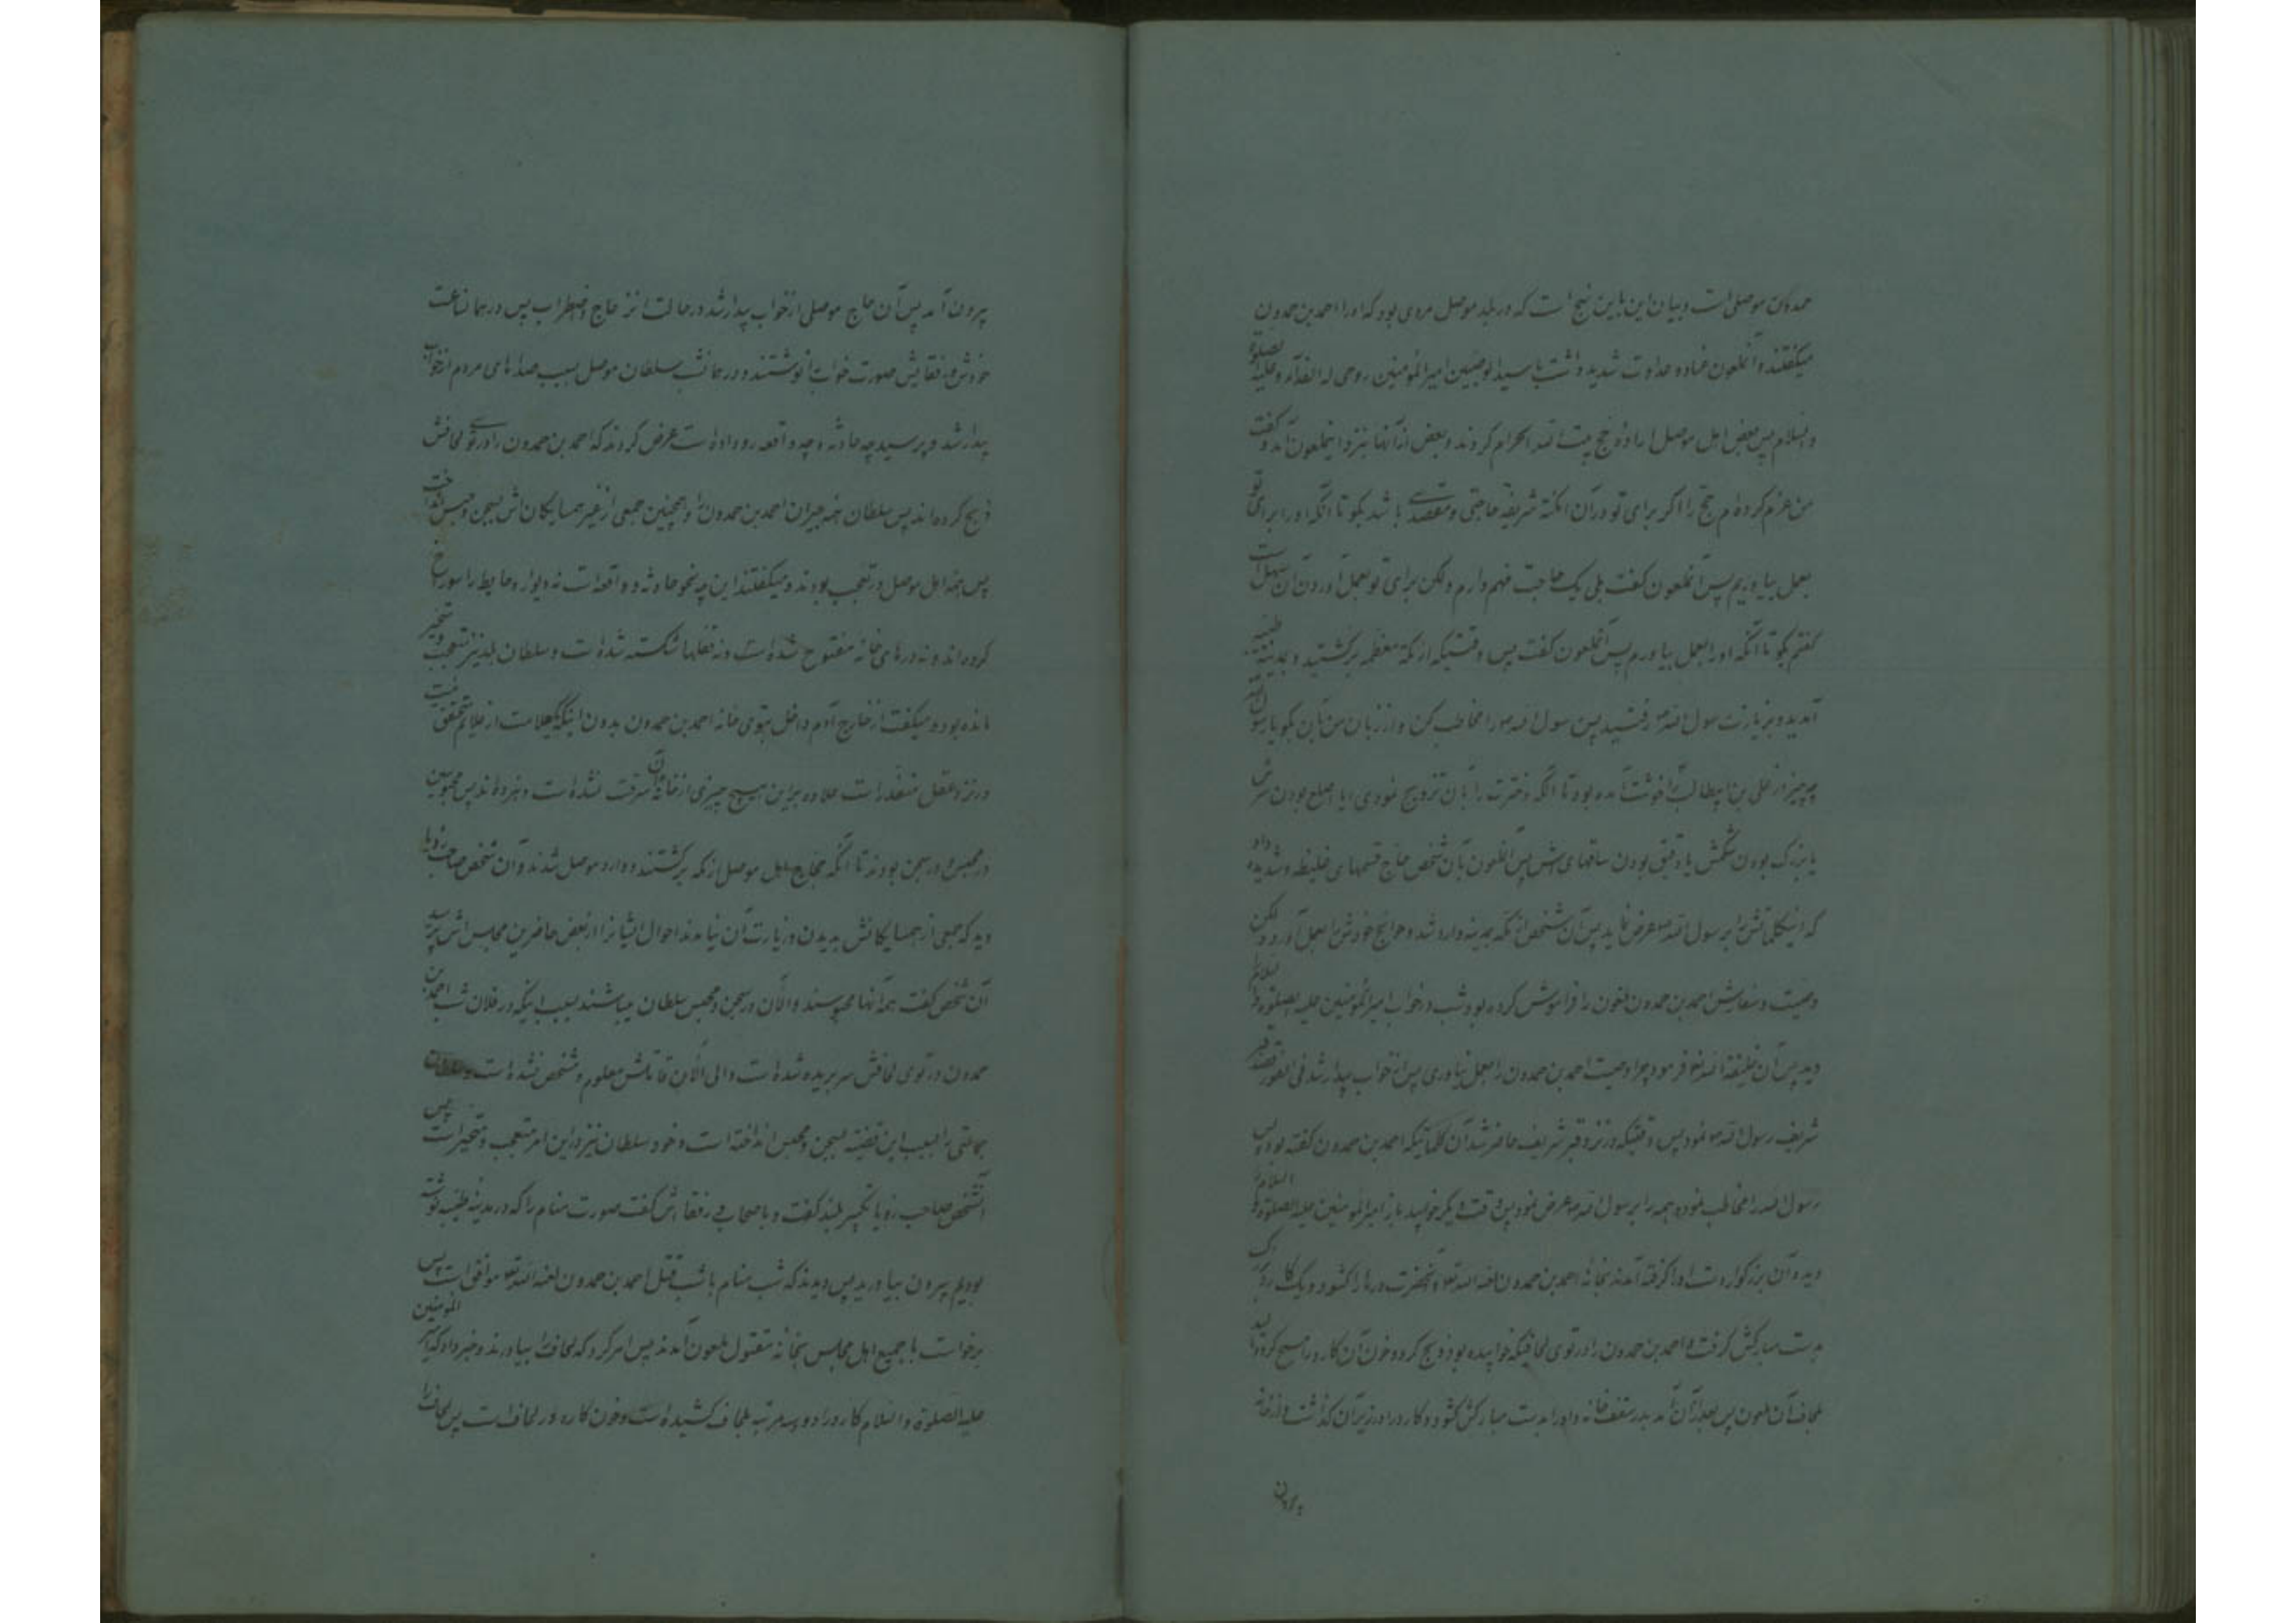 حمدون موصلی است و بیان این باین نهج است که در بلد موصل مردی بود که او را احمد بن حمدون
میکفتند و آنملعون عناد و عداوت شدید داشت با سید الوصیین امیرالمؤمنین روحی له الفدآء و علیه الصلوة
والسلام پس بعض اهل موصل ارادهٔ حج بیت الله الحرام کردند و بعض از آنها نزد اینملعون آمد و کفت
من عزم کرده‌ام حج را اکر برای تو در آن امکنهٔ شریفه حاجتی و مقصدی باشد بکو تا آنکه او را برای تو
بعمل بیاوریم پس آنملعون کفت بلی یک حاجت مهم دارم ولکن برای تو بعمل آوردن آن سهل است
کفتم بکو تا آنکه او را بعمل بیاورم پس آنملعون کفت پس وقتیکه از مکهٔ معظمه برکشتید و بمدینهٔ طیبه
آمدید و بزیارت رسول الله رفتید پس رسول الله را مخاطب کن و از زبان من بآن بکو یا رسول الله
چه چیز از علی بن ابیطالب ترا خوشت آمده بود تا آنکه دخترت را بآن تزویج نمودی آیا اصلع بودن سرش
یا بزرک بودن شکمش یا دقیق بودن ساقهای اش پس آنملعون بآن شخص حاج قسمهای غلیظه و شدیده داد
که اینکلماتش را برسول الله عرض نماید پس آن شخص از مکه بمدینه وارد شد و حوایج خودش را بعمل آورد ولکن
وصیت و سفارش احمد بن حمدون ملعون را فراموش کرده بود شب در خواب امیرالمؤمنین علیه الصلوة والسلام را
دید پس آن خلیفة الله فرمود چرا وصیت احمد بن حمدون را بعمل نیاوری پس از خواب بیدار شد فی الفور قصد قبر
شریف رسول الله نمود پس وقتیکه در نزد قبر شریف حاضر شد آن کلماتیکه احمد بن حمدون کفته بود پس
رسول الله را مخاطب نموده همه را برسول الله عرض نمود پس وقت دیکر خوابید باز امیرالمؤمنین علیه الصلوة والسلام را
دید و آن بزرکوار دست او را کرفته آمدند بخانهٔ احمد بن حمدون لعنه الله و آنحضرت درها را کشود و یک کارد بزرک
بدست مبارکش کرفت و احمد بن حمدون را در توی لحافیکه خوابیده بود ذبح کرد و خون آن کارد را مسح کرد با
لحاف آن ملعون پس بعد از آن آمد بدر سقف خانه و او را بدست مبارکش کشود و کارد را در زیر آن کذاشت و از خانه
بیرون
بیرون آمد پس آن حاج موصل از خواب بیدار شد در حالت انزعاج و اضطراب پس در همانساعت
خودش و رفقایش صورت خواب را نوشتند و در همانشب سلطان موصل بسبب صداهای مردم از خواب
بیدار شد و پرسید چه حادثه و چه واقعه رو داده است عرض کردند که احمد بن حمدون را در توی لحافش
ذبح کرده‌اند پس سلطان همه جیران احمد بن حمدون را و همچنین جمعی از غیر همسایکان اش بسجن و حبس انداخت
پس همه اهل موصل در تعجب بودند و میکفتند این چه نحو حادثه و واقعه است نه دیوار و حایط را سوراخ
کرده‌اند و نه درهای خانه مفتوح شده است و نه قفلها شکسته شده است و سلطان بلد نیز متعجب و متحیر
مانده بود و میکفت از خارج آدم داخل بتوی خانه احمد بن حمدون بدون اینکه یک علامت از علایم متحقق نیست
در نزد عقل متعذر است علاوه بر این هیچ چیزی از خانهٔ آن سرقت نشده است و نبرده‌اند پس محبوسین
در محبس و در سجن بودند تا آنکه حجاج اهل موصل از مکه برکشتند و وارد موصل شدند و آن شخص صاحب رؤیا
دید که جمعی از همسایکانش بدیدن و زیارت آن نیامدند احوال ایشانرا از بعض حاضرین مجالس اش پرسید
آن شخص کفت همه آنها محبوسند و الآن در سجن و محبس سلطان میباشند بسبب اینکه در فلان شب احمد بن
حمدون در توی لحافش سر بریده شده است و الی الآن قاتلش معلوم و مشخص نشده است و سلطان
جماعتی را بسبب این قضیه بسجن و محبس انداخته است و خود سلطان نیز در این امر متعجب و متحیر است پس
آنشخص صاحب رؤیا تکبیر بلند کفت و باصحاب و رفقا اش کفت صورت منام را که در مدینهٔ طیبه نوشته
بودیم بیرون بیاورید پس دیدند که شب منام با شب قتل احمد بن حمدون لعنه الله موافق است پس
برخواست با جمیع اهل مجالس بخانهٔ مقتول ملعون آمدند پس امر کرد که لحاف را بیاورند و خبر داد که امیر المؤمنین
علیه الصلوة والسلام کارد را دو سه مرتبه بلحاف کشیده است و خون کارد در لحاف است پس لحاف را